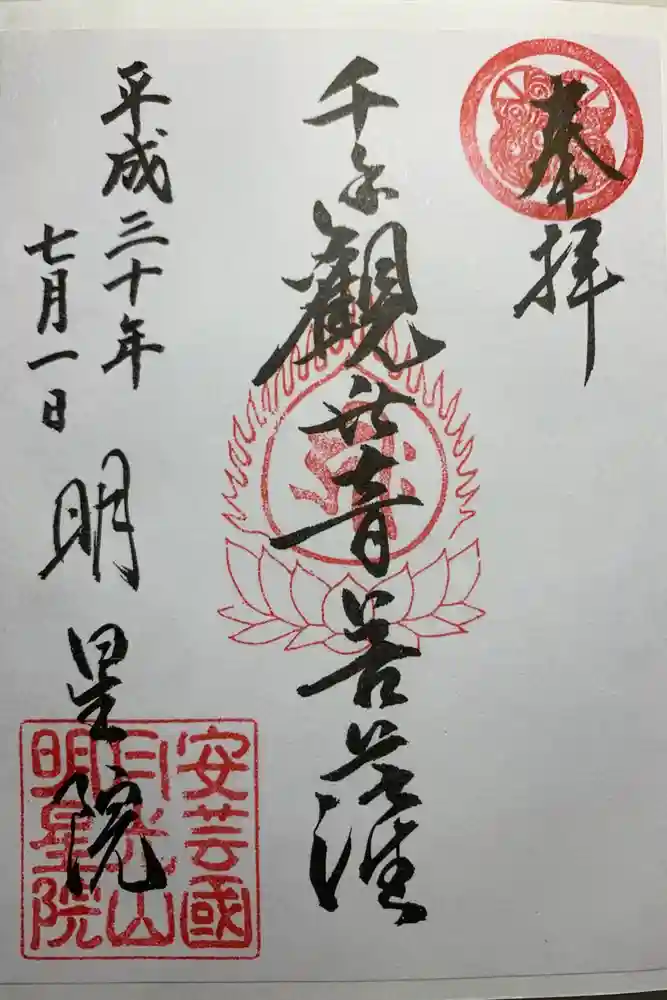 奉拝
千手観世音菩薩
平成三十年
七月一日
明星院
安芸國
月光山
明星院